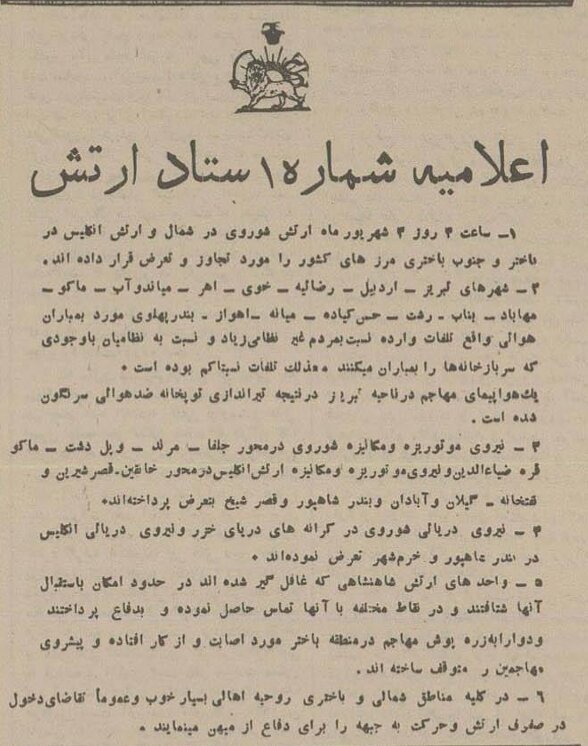 اعلامیه شماره ۱ ستاد ارتش
۱ــ ساعت ۴ روز ۳ شهریور ماه ارتش شوروی در شمال و ارتش انگلیس در
باختر و جنوب باختری مرز های کشور را مورد تجاوز و تعرض قرار داده اند.
۲ ــ شهرهای تبریز ــ اردبیل ــ رضائیه ــ خوی ــ اهر ــ میاندوآب ــ ماکو ــ
مهاباد ــ بناب ــ رشت ــ حسن‌کیاده ــ میانه ــ اهواز ــ بندرپهلوی مورد بمباران
هوائی واقع تلفات وارده نسبت بمردم غیر نظامی زیاد و نسبت به نظامیان باوجودی
که سربازخانه‌ها را بمباران میکنند معذلک تلفات نسبتاکم بوده است .
یك هواپیمای مهاجم درناحیه تبریز درنتیجه تیراندازی توپخانه ضدهوائی سرنگون
شده است .
۳ ــ نیروی موتوریزه ومکانیزه شوروی درمحور جلفا ــ مرند ــ و پل دشت ــ ماکو
قره ضیاءالدین و نیروی موتوریزه و مکانیزه ارتش انگلیس درمحور خانقین ــ قصرشیرین و
نفتخانه ــ گیلان و آبادان و بندر شاهپور و قصر شیخ بتعرض پرداخته‌اند.
۴ ــ نیروی دریائی شوروی در کرانه های دریای خزر و نیروی دریائی انگلیس
در بندر شاهپور و خرم‌شهر تعرض نموده‌اند .
۵ ــ واحد های ارتش شاهنشاهی که غافل گیر شده اند در حدود امکان باستقبال
آنها شتافتند و در نقاط مختلفه با آنها تماس حاصل نموده و بدفاع پرداختند
ودوارابه‌زره پوش مهاجم درمنطقه باختر مورد اصابت و از کار افتاده و پیشروی
مهاجمین را متوقف ساخته اند .
۶ ــ در کلیه مناطق شمالی و باختری روحیه اهالی بسیار خوب وعموماً تقاضای‌دخول
در صفوف ارتش وحرکت به جبهه را برای دفاع از میهن مینمایند .